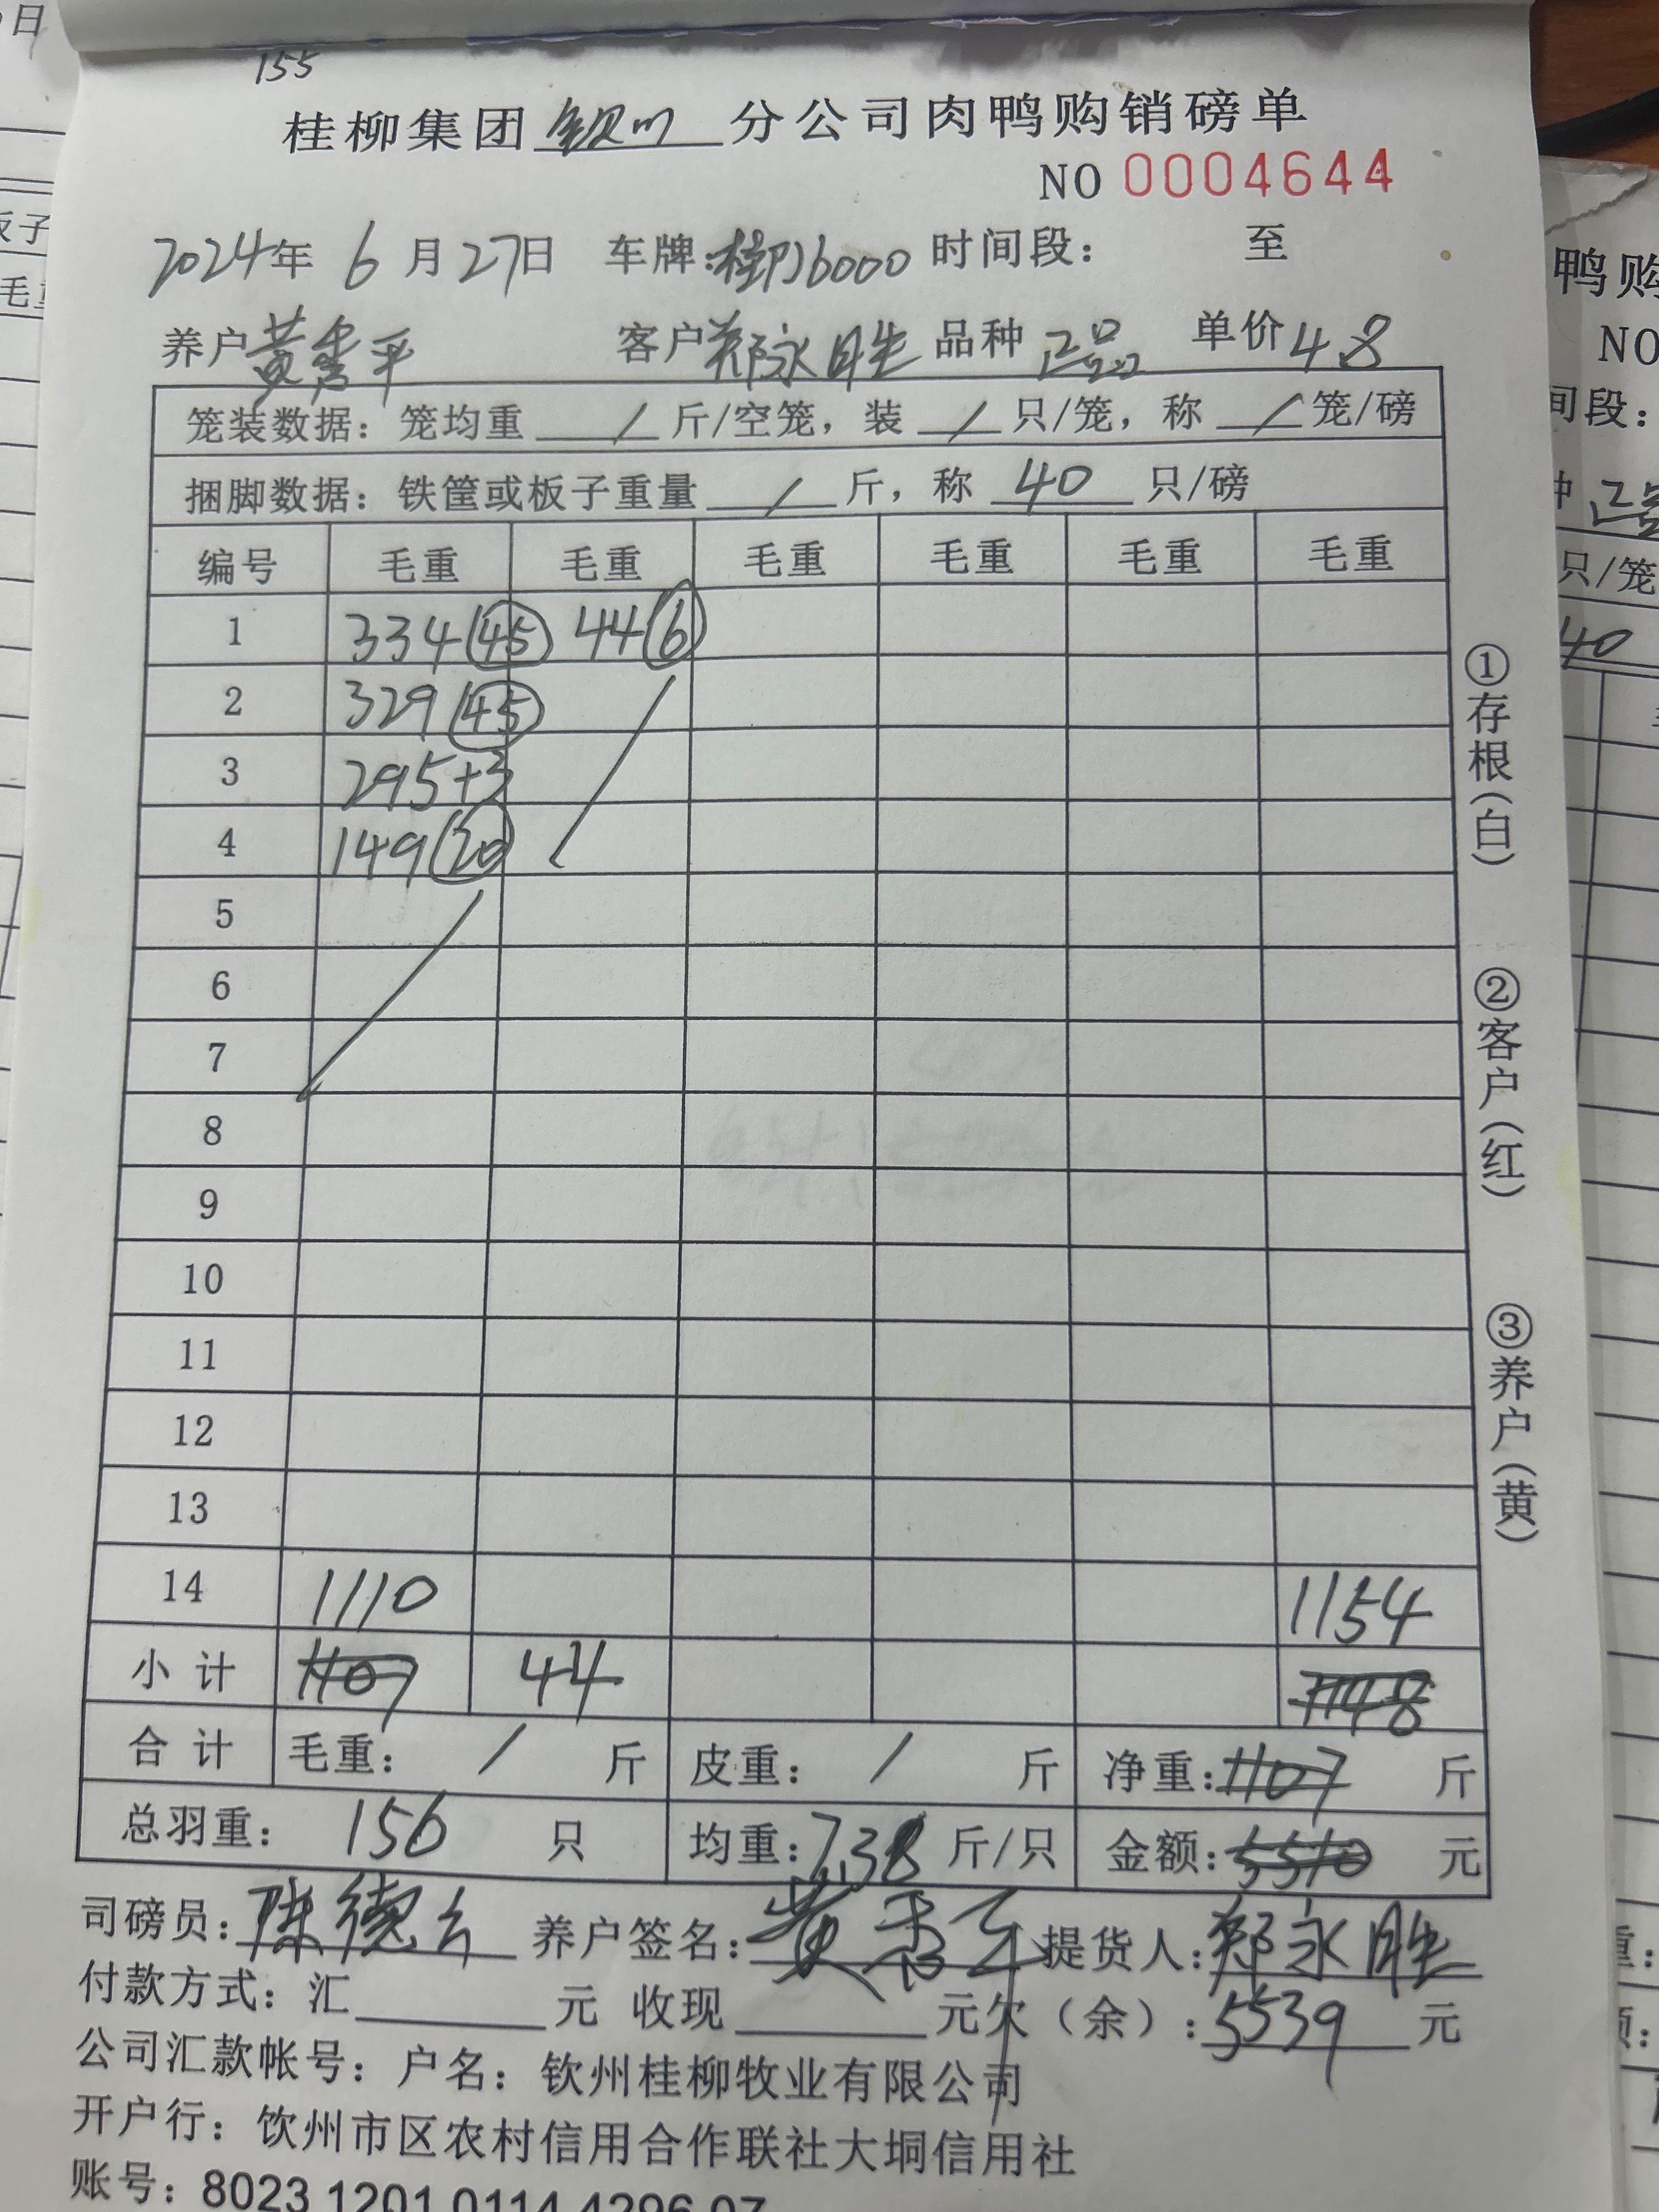 155
桂柳集团钦州分公司肉鸭购销磅单
NO 0004644
2024年 6月27日 车牌: 6000 时间段: 至
养户黄秀平 客户郑永胜 品种 正品 单价4.8
笼装数据: 笼均重 / 斤/空笼, 装 / 只/笼, 称 / 笼/磅
捆脚数据: 铁筐或板子重量 / 斤, 称 40 只/磅
编号 毛重 毛重 毛重 毛重 毛重 毛重
1 334(45) 44(6)
2 329(45)
3 295+3
4 149(20)
5
6
7
8
9
10
11
12
13
14 1110 1154
小计 1107 44 1148
合计 毛重: / 斤 皮重: / 斤 净重:1107 斤
总羽重: 156 只 均重:7.38 斤/只 金额:5510 元
司磅员:陈德云 养户签名:黄秀平 提货人:郑永胜
付款方式: 汇 元 收现 元欠(余):5539 元
公司汇款帐号: 户名: 钦州桂柳牧业有限公司
开户行: 钦州市区农村信用合作联社大垌信用社
账号: 8023 1201 0114 4296 07
①存根(白)
②客户(红)
③养户(黄)